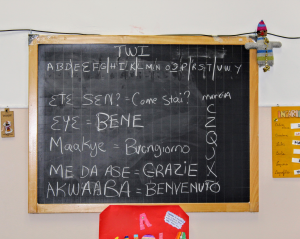 TWI
A B D E Ɛ F G H I K L M N O Ɔ P R S T U W Y
ƐTE SƐN? = Come stai?
ƐYƐ = BENE
Maakye = Buongiorno
ME DA ASE = GRAZIE
AKWAABA = BENVENUTO
C
Z
Q
J
X
V